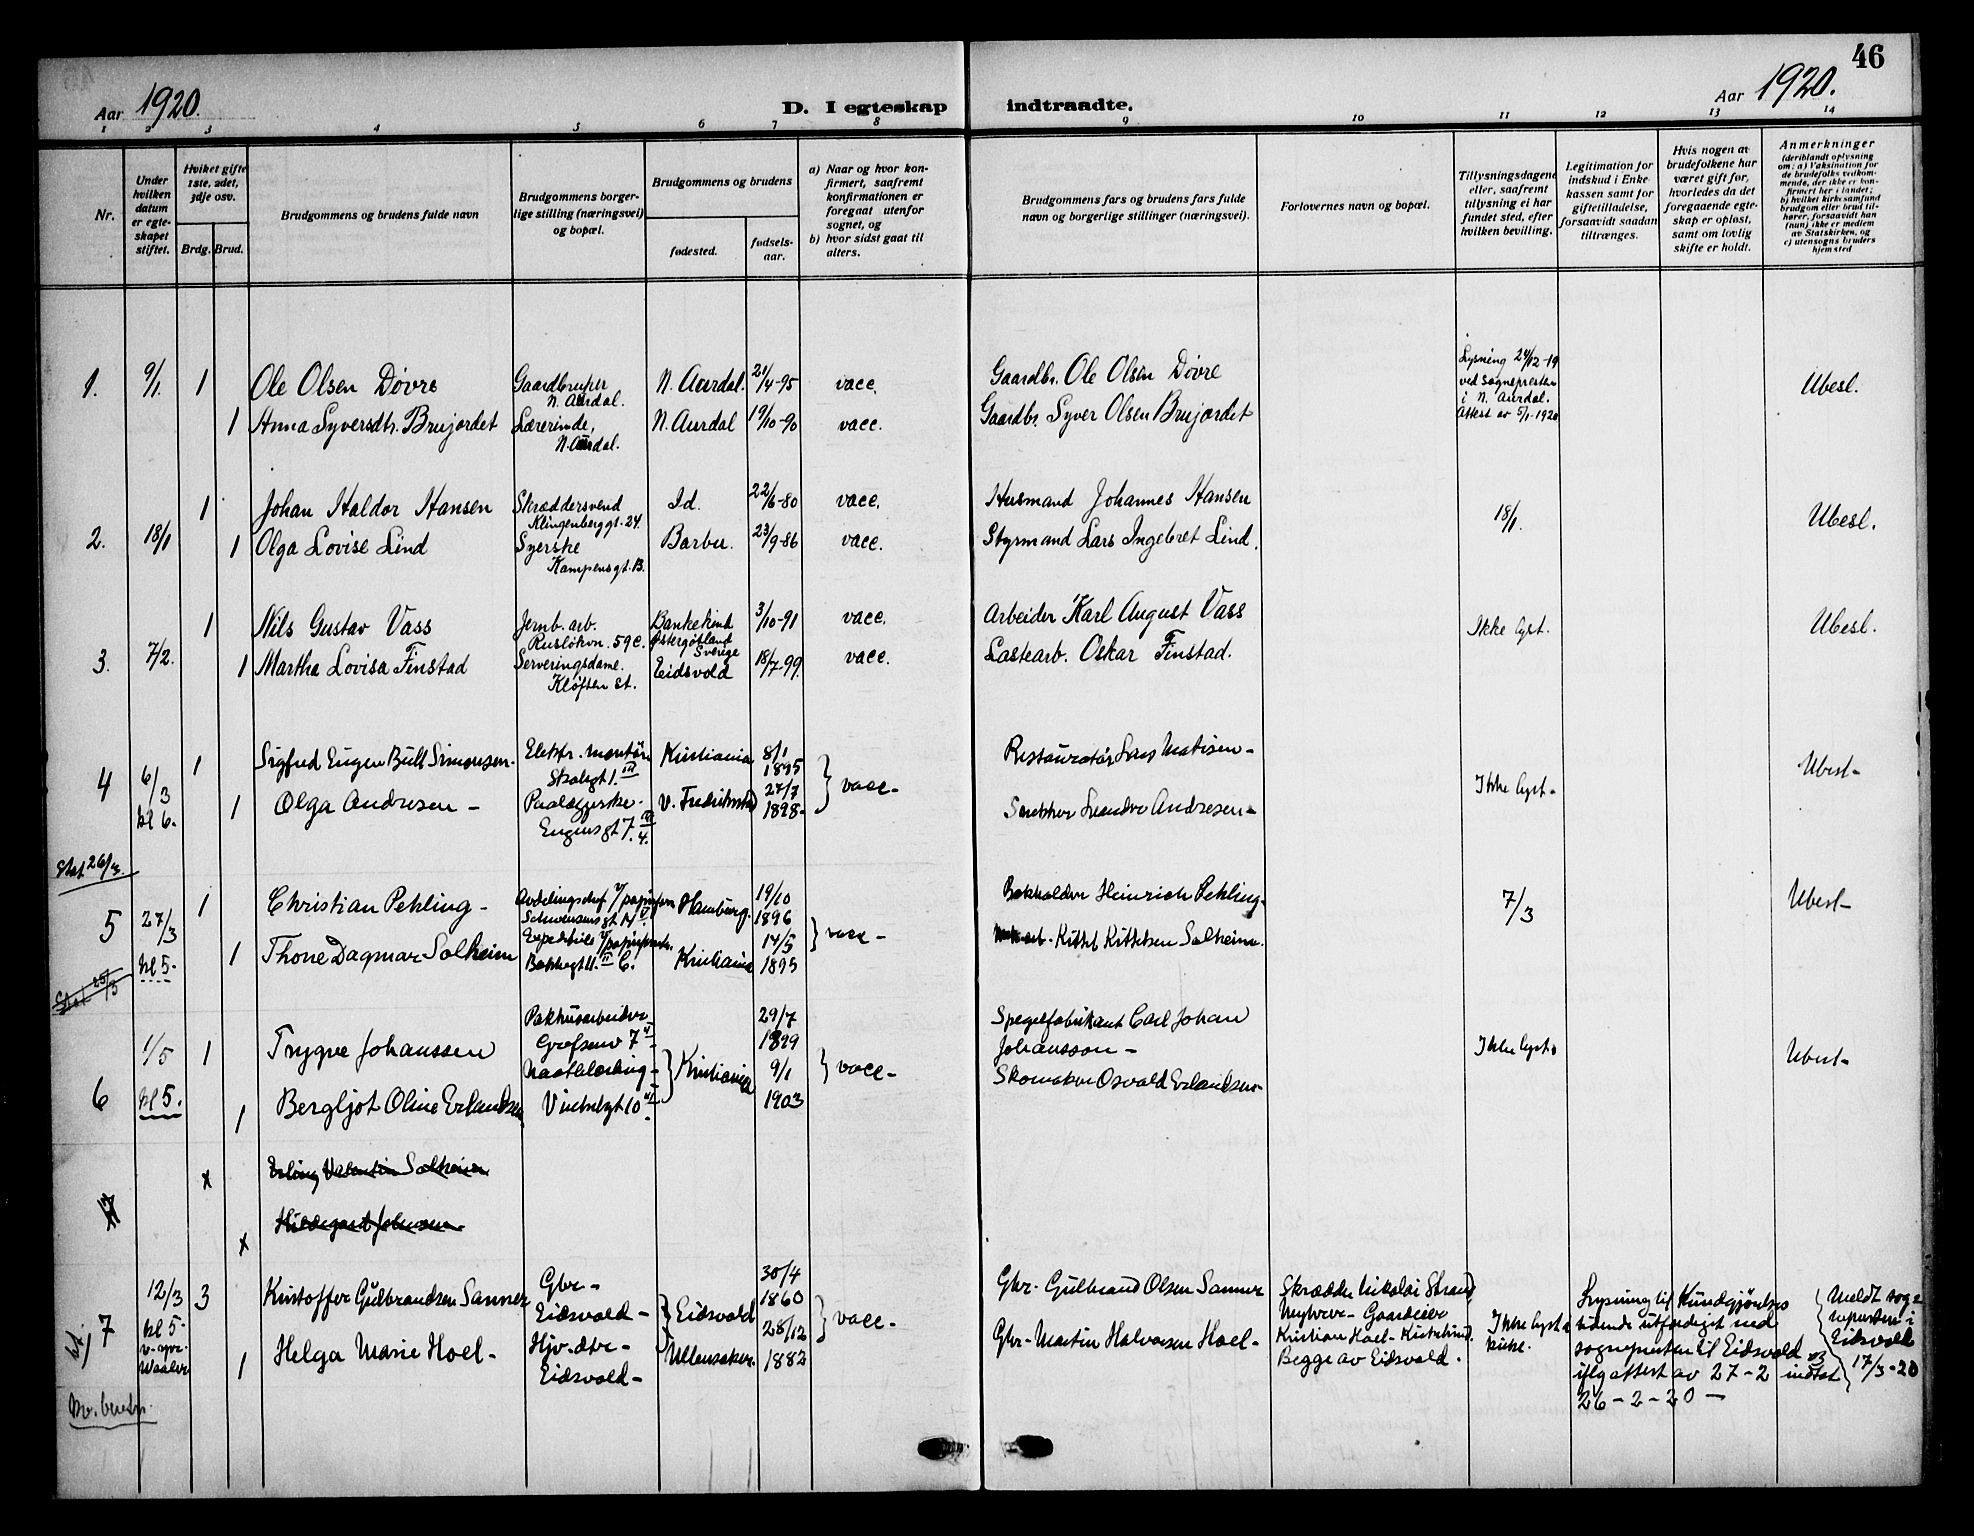 46
Aar 1920.
D. I egteskap indtraadte.
Aar 1920.
1 2 3 4 5 6 7 8 9 10 11 12 13 14
Nr.
Under hvilken datum er egteskapet stiftet.
Hvilket gifte 1ste, 2det, 3dje osv.
Brdg. Brud.
Brudgommens og brudens fulde navn
Brudgommens borgerlige stilling (næringsvei) og bopæl.
Brudgommens og brudens
fødested.
fødselsaar.
a) Naar og hvor konfirmert, saafremt konfirmationen er foregaat utenfor sognet, og
b) hvor sidst gaat til alters.
Brudgommens fars og brudens fars fulde navn og borgerlige stillinger (næringsvei).
Forlovernes navn og bopæl.
Tillysningsdagene eller, saafremt tillysning ei har fundet sted, efter hvilken bevilling.
Legitimation for indskud i Enkekassen samt for giftetilladelse, forsaavidt saadan tiltrænges.
Hvis nogen av brudefolkene har været gift før, hvorledes da det foregaaende egteskap er opløst, samt om lovlig skifte er holdt.
Anmerkninger
(deriblandt oplysning om: a) Vaksination for de brudefolks vedkommende, der ikke er konfirmert her i landet; b) hvilket kirkesamfund brudgom eller brud tilhører, forsaavidt han (hun) ikke er medlem av Statskirken, og c) utensogns bruders hjemsted
1. 9/1. 1 Ole Olsen Døvre Gaardbruker N. Aurdal. N. Aurdal. 21/4-95 vacc. Gaardbr. Ole Olsen Døvre Lysning 24/12-19 ved sognepresten i N. Aurdal. Attest av 5/1-1920 Ubesl.
1 Anna Syversdtr. Brujordet Lærerinde, N. Aurdal. N. Aurdal 19/10-90 vacc. Gaardbr. Syver Olsen Brujordet
2. 18/1 1 Johan Haldor Hansen Skræddersvend Klingenberggt. 24. Id. 22/6-80 vacc. Husmand Johannes Hansen 18/1. Ubesl.
1 Olga Lovise Lind Syerske Kampensgt. 13. Barbu. 23/9-86 vacc. Styrmand Lars Ingebret Lind.
3. 7/2. 1 Nils Gustav Vass Jernb. arb. Ruseløkvn. 59 C. Bankekind Østergøtland Sverige 3/10-91 vacc. Arbeider Karl August Vass Ikke lyst. Ubesl.
1 Martha Lovisa Finstad Serveringsdame. Kløften st. Eidsvold 18/7-99. vacc. Lastearb. Oskar Finstad.
4 6/3 kl 6. 1 Sigfred Eugen Bull Simonsen. Elektr. montør Kristiania 8/1 1895 vacc- Restauratør Mathisen- Ikke lyst- Ubesl-
1 Olga Andresen - Paalæggerske. Eugensgt 7. 4. V. Fredrikstad 27/7 1898- Snekker Andresen-
Stat. 26/3.
5 27/3 kl 5- 1 Christian Pehling - Hamburg. 19/10 1896 vacc - Bokholder Heinrich Pehling- 7/3 Ubesl-
1 Thone Dagmar Solheim Kristiania 14/5 1895 Kittel Kittelsen Solheim.
6 1/5 kl 5. 1 Trygve Johanssen Pakhusarbeider Grefsenv 7 Kristiania 29/7 1899 vacc- Carl Johan Johansson - Ikke lyst. Ubesl-
1 Bergljot Oline Erlandsen 9/1 1903 Skomaker Osvald Erlandsen
7 x Erling Valentin Solheim
x Hildegard Johnsen
7 12/3 kl 5- Waaler 3 Kristoffer Gulbrandsen Sanner Gbr- Eidsvold - Eidsvold 30/4 1860 vacc- Gbr- Gulbrand Olsen Sanner Skrædder Nikolai Strand Gaardeier Kristian Hoel- Begge av Eidsvold. Ikke lyst i kirke. Lysning til Kundgjørelses tidende utfærdiget ved sognepresten til Eidsvold iflg attest av 27-2 indtat 26-2-20 - Meldt sognepresten i Eidsvold 17/3-20
1 Helga Marie Hoel- Eidsvold- Ullensaker 28/12 1882 Gbr- Martin Halvorsen Hoel-